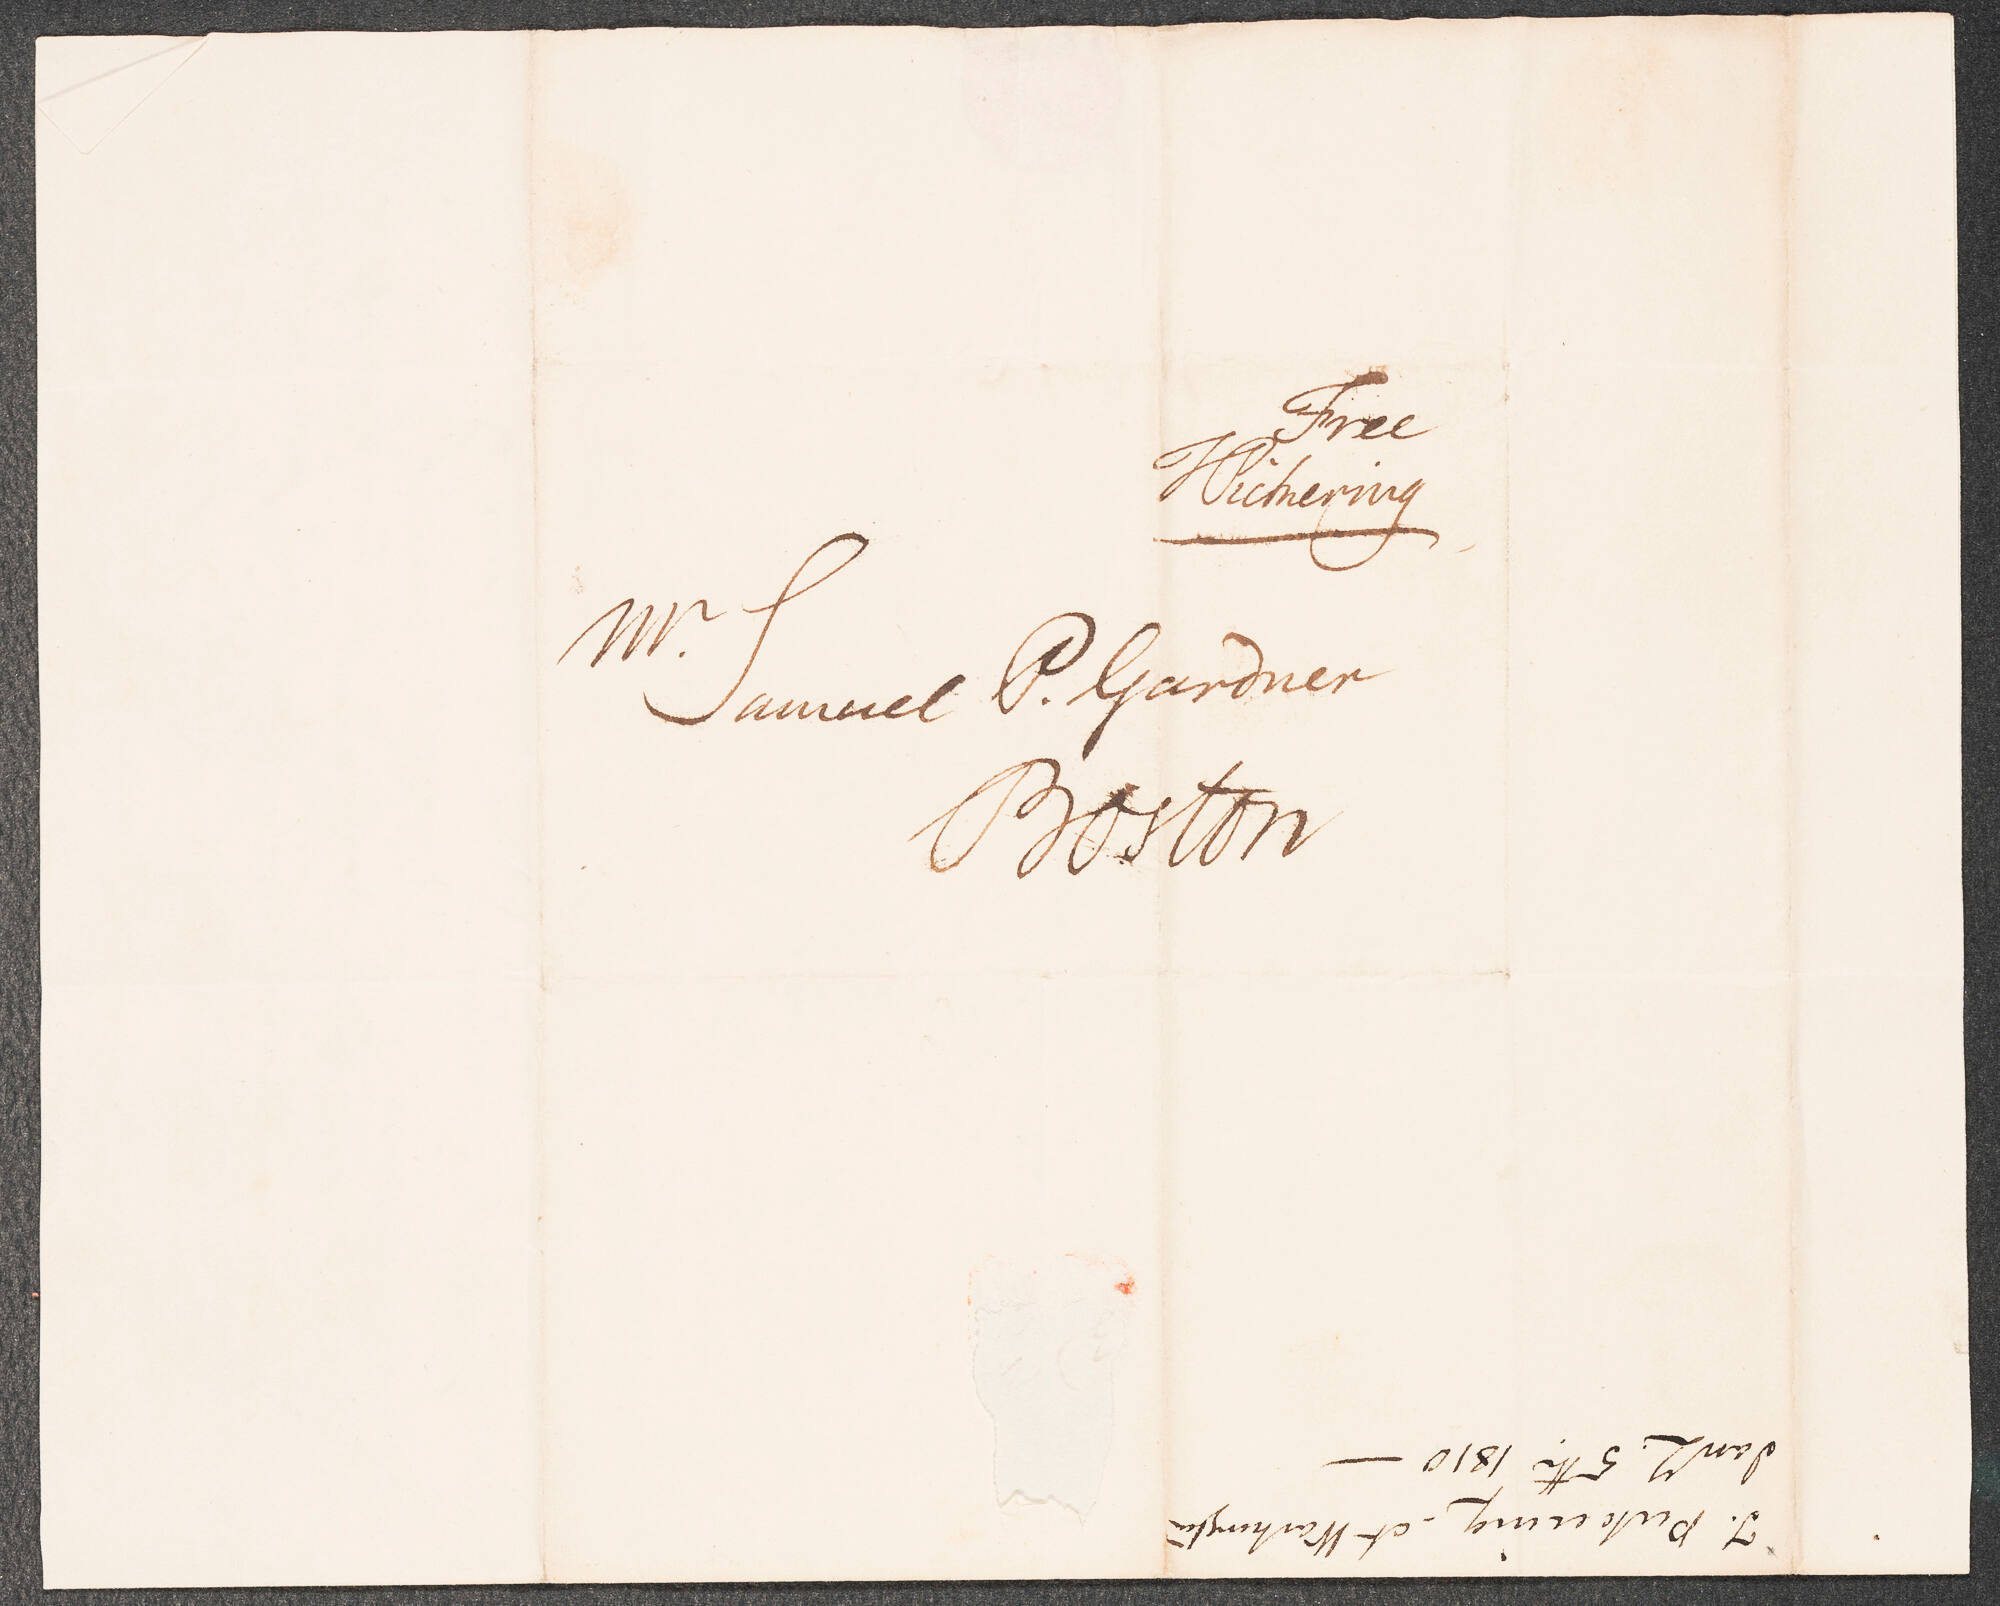 Free
TPickering
Mr. Samuel P. Gardner
Boston
T. Pickering - at Washingtn
Jany. 5th. 1810 —